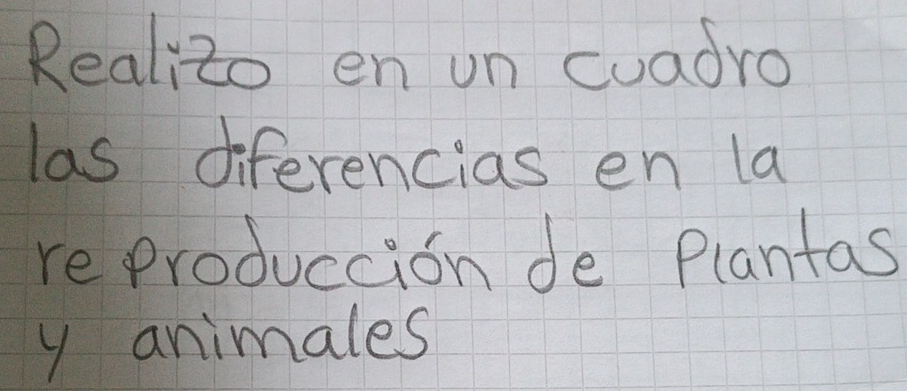 Realizo en un cuadro
las diferencias en la
reproducción de Plantas
y animales